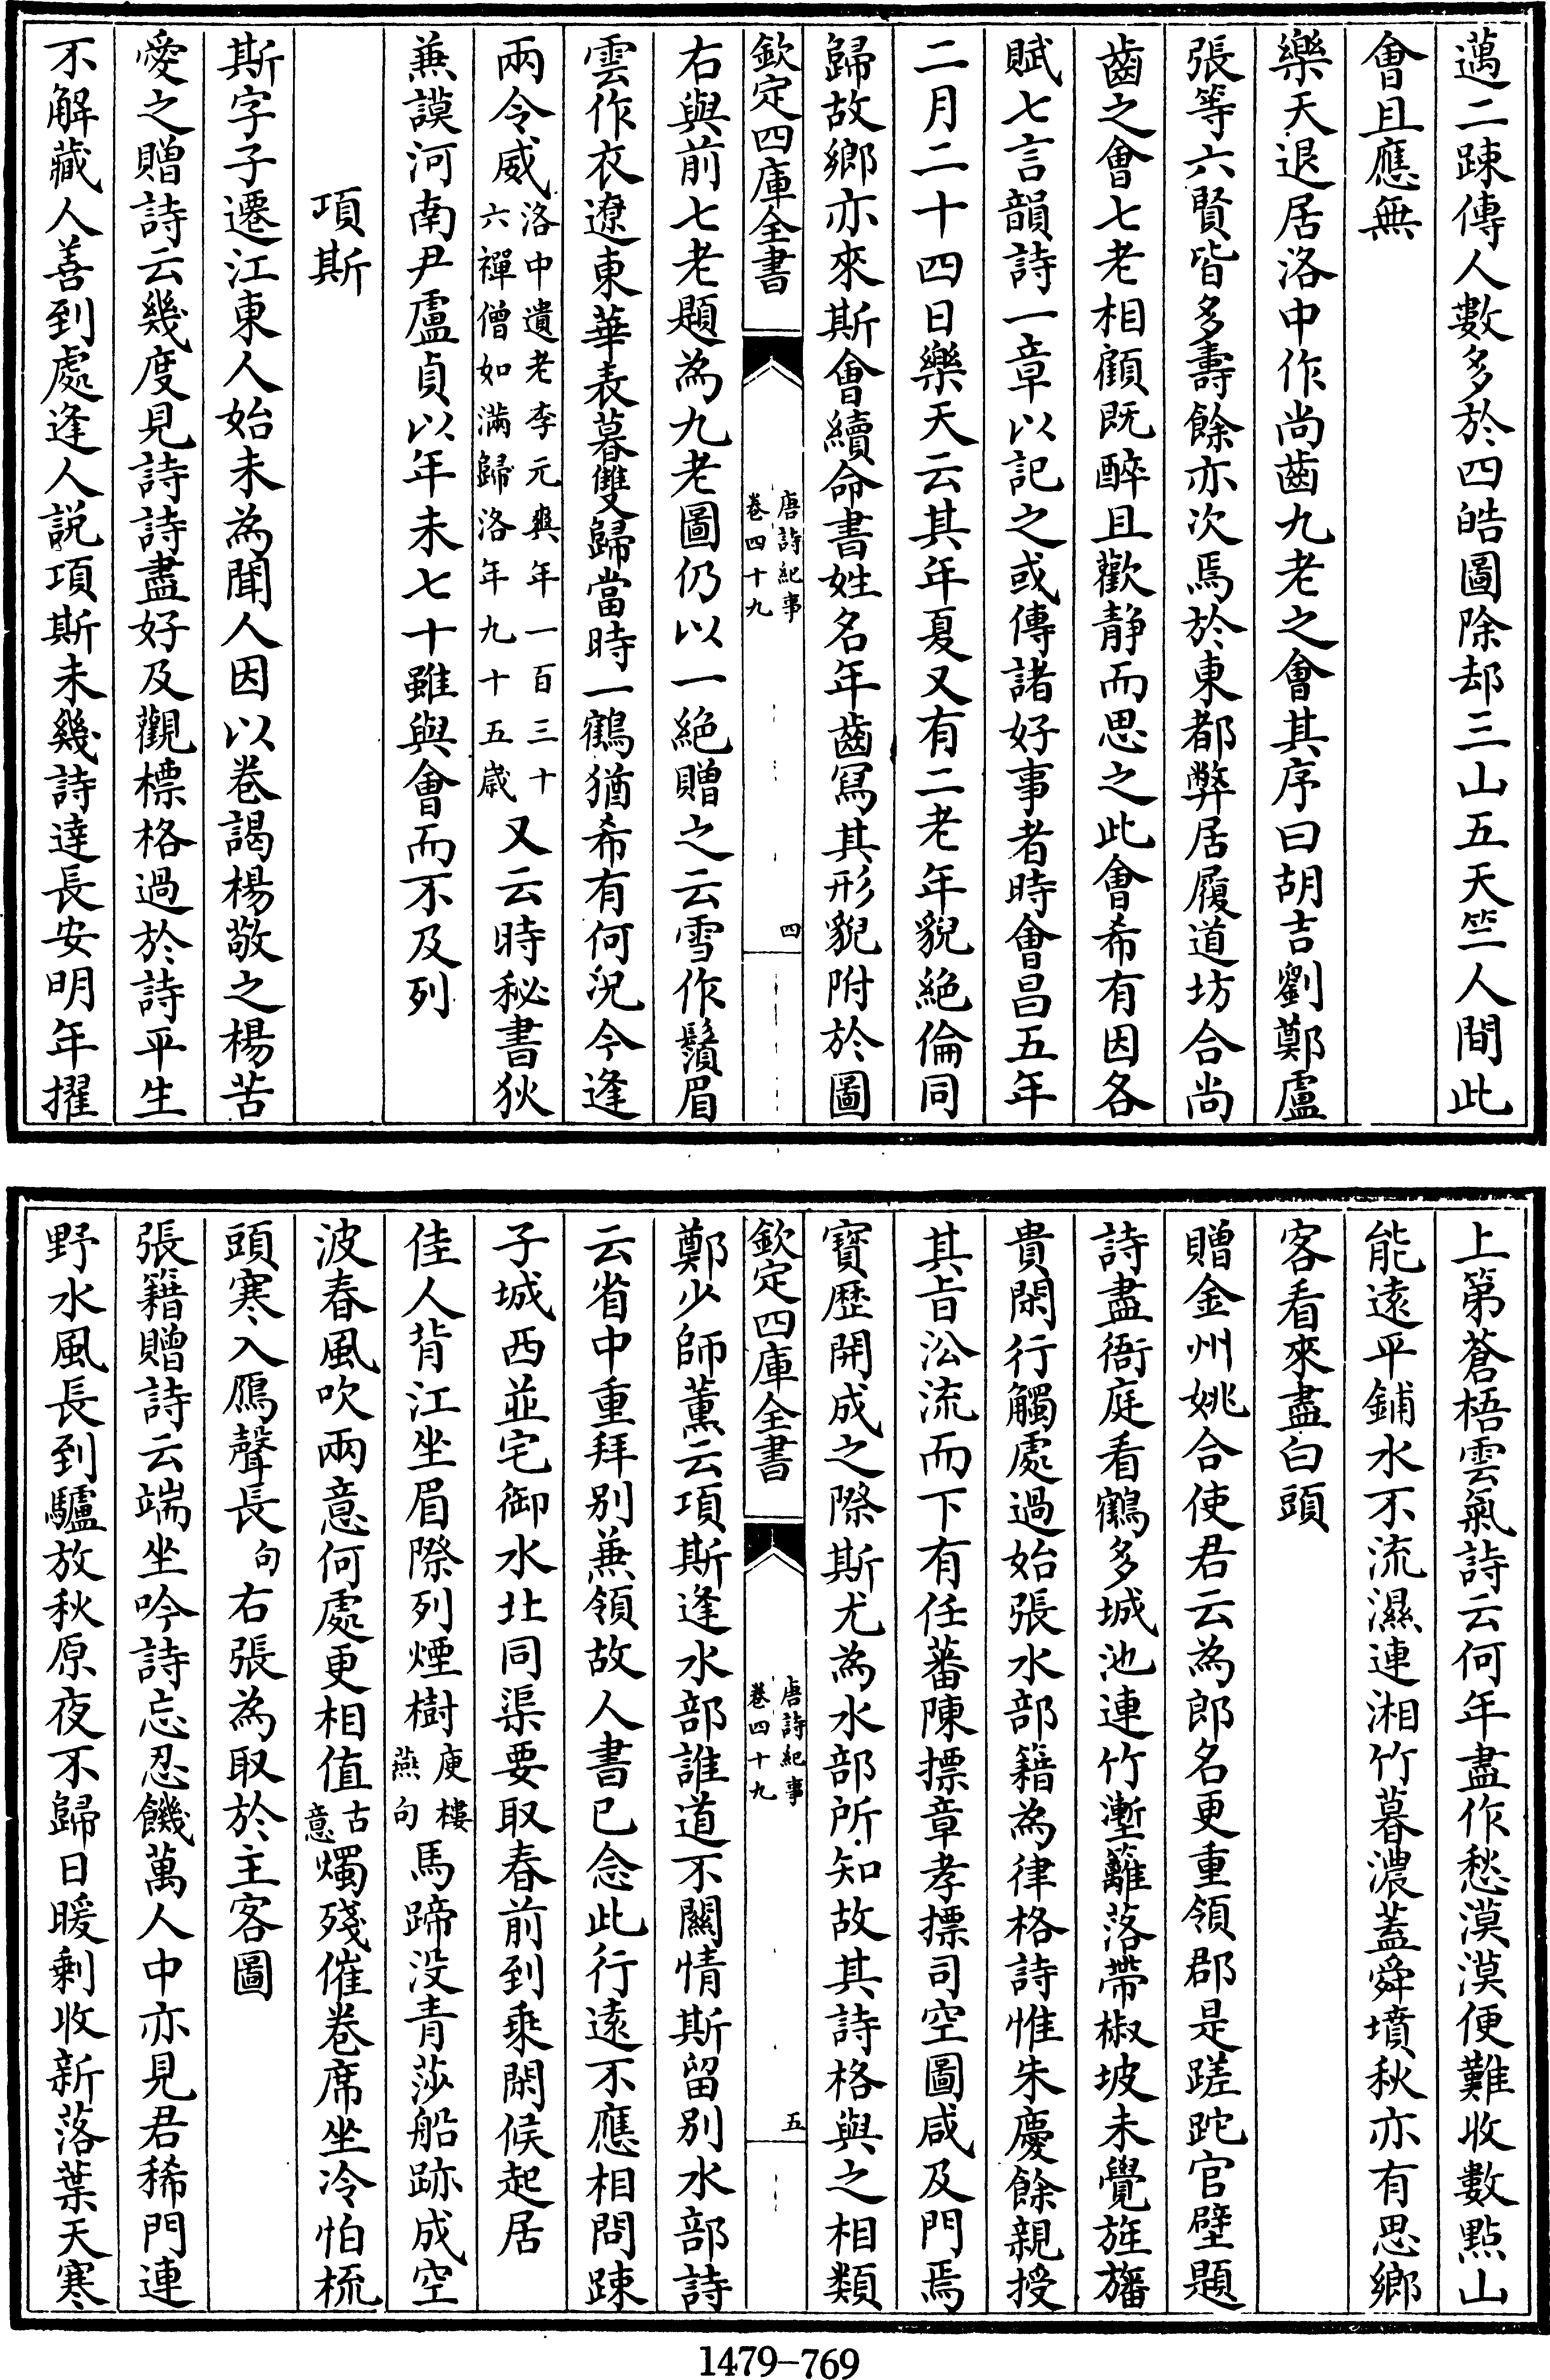 邁二踈傳人數多於四皓圖除却三山五天竺人間此
會且應無
樂天退居洛中作尚齒九老之會其序曰胡吉劉鄭盧
張等六賢皆多壽餘亦次焉於東都弊居履道坊合尚
齒之會七老相顧既醉且歡静而思之此會希有因各
賦七言韻詩一章以記之或傳諸好事者時會昌五年
二月二十四日樂天云其年夏又有二老年貎絶倫同
歸故鄉亦來斯會續命書姓名年齒寫其形貎附於圖
欽定四庫全書
唐詩紀事
卷四十九
四
右與前七老題為九老圖仍以一絶贈之云雪作鬚眉
雲作衣遼東華表暮雙歸當時一鶴猶希有何況今逢
兩令威洛中遺老李元爽年一百三十六禪僧如滿歸洛年九十五歲又云時秘書狄
兼謨河南尹盧貞以年未七十雖與會而不及列
項斯
斯字子遷江東人始未為聞人因以卷謁楊敬之楊苦
愛之贈詩云幾度見詩詩盡好及觀標格過於詩平生
不解藏人善到處逢人説項斯未幾詩達長安明年擢
上第蒼梧雲氣詩云何年盡作愁漠漠便難收數點山
能遠平鋪水不流濕連湘竹暮濃蓋舜墳秋亦有思鄉
客看來盡白頭
贈金州姚合使君云為郎名更重領郡是蹉跎官壁題
詩盡衙庭看鶴多城池連竹塹籬落帶椒坡未覺旌旛
貴閑行觸處過始張水部籍為律格詩惟朱慶餘親授
其旨沿流而下有任蕃陳摽章孝摽司空圖咸及門焉
寳歴開成之際斯尤為水部所知故其詩格與之相類
欽定四庫全書
唐詩紀事
卷四十九
五
鄭少師薫云項斯逢水部誰道不關情斯留别水部詩
云省中重拜别兼領故人書已念此行遠不應相問踈
子城西並宅御水北同渠要取春前到乘閑候起居
佳人背江坐眉際列煙樹庾樓燕句馬蹄没青莎船跡成空
波春風吹兩意何處更相值古意燭殘催卷席坐冷怕梳
頭寒入鴈聲長句右張為取於主客圖
張籍贈詩云端坐吟詩忘忍饑萬人中亦見君稀門連
野水風長到驢放秋原夜不歸日暖剩收新落葉天寒
1479-769